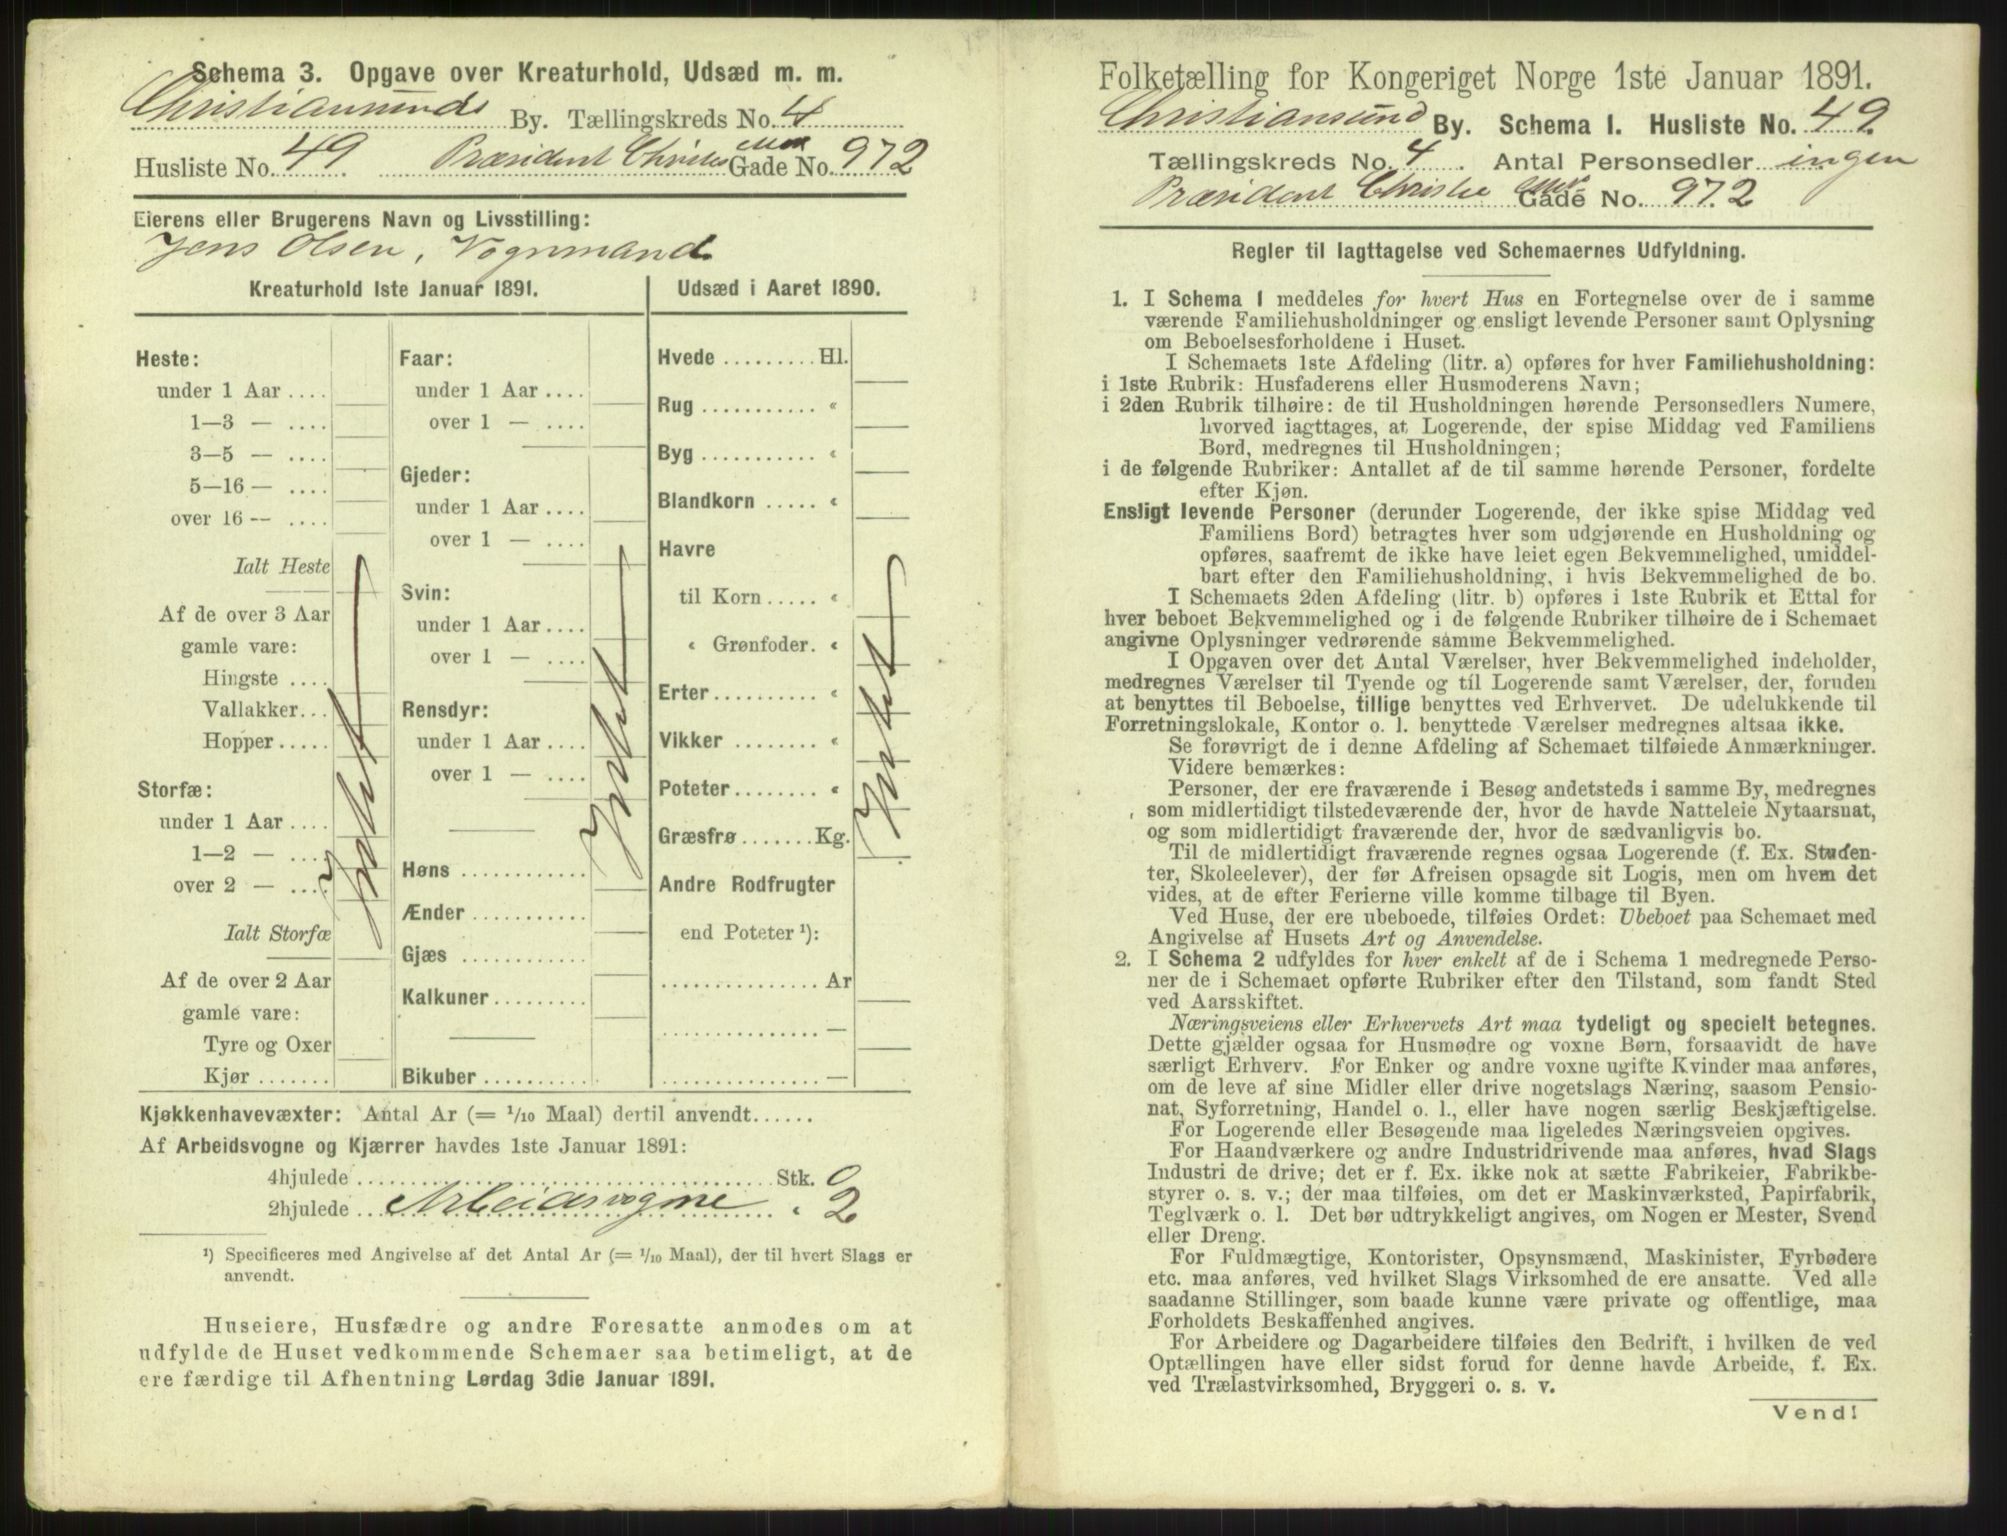 Schema 3. Opgave over Kreaturhold, Udsæd m. m.
Christiansunds By. Tællingskreds No. 4
Husliste No. 49. Præsident Christies Gade No. 972
Eierens eller Brugerens Navn og Livsstilling:
Jens Olsen, Vognmand.
Kreaturhold 1ste Januar 1891.
Heste:
under 1 Aar ....
1—3 — ....
3—5 — ....
5—16 — ....
over 16 — ....
Ialt Heste
Af de over 3 Aar
gamle vare:
Hingste ....
Vallakker...
Hopper.....
Storfæ:
under 1 Aar ....
1—2 — ....
over 2 — ....
Ialt Storfæ
Af de over 2 Aar
gamle vare:
Tyre og Oxer
Kjør .......
Intet
Faar:
under 1 Aar ....
over 1 — ....
Gjeder:
under 1 Aar ....
over 1 — ....
Svin:
under 1 Aar ....
over 1 — ....
Rensdyr:
under 1 Aar ....
over 1 — ....
Høns ............
Ænder ...........
Gjæs ............
Kalkuner.........
Bikuber ..........
Intet
Udsæd i Aaret 1890.
Hvede ......... Hl.
Rug ........... "
Byg ........... "
Blandkorn ..... "
Havre
til Korn ..... "
" Grønfoder. "
Erter ......... "
Vikker ........ "
Poteter........ "
Græsfrø ....... Kg.
Andre Rodfrugter
end Poteter ¹):
............... Ar
............... —
............... —
Intet
Kjøkkenhavevæxter: Antal Ar (= 1/10 Maal) dertil anvendt......
Af Arbeidsvogne og Kjærrer havdes 1ste Januar 1891:
4hjulede ........................................ Stk. 0
2hjulede ... Arbeidsvogne " 2
¹) Specificeres med Angivelse af det Antal Ar (= 1/10 Maal), der til hvert Slags er
anvendt.
Huseiere, Husfædre og andre Foresatte anmodes om at
udfylde de Huset vedkommende Schemaer saa betimeligt, at de
ere færdige til Afhentning Lørdag 3die Januar 1891.
Folketælling for Kongeriget Norge 1ste Januar 1891.
Christiansund By. Schema 1. Husliste No. 49.
Tællingskreds No. 4. Antal Personsedler ingen
Præsident Christie Gade No. 972
Regler til Iagttagelse ved Schemaernes Udfyldning.
1. I Schema 1 meddeles for hvert Hus en Fortegnelse over de i samme
værende Familiehusholdninger og ensligt levende Personer samt Oplysning
om Beboelsesforholdene i Huset.
I Schemaets 1ste Afdeling (litr. a) opføres for hver Familiehusholdning:
i 1ste Rubrik: Husfaderens eller Husmoderens Navn;
i 2den Rubrik tilhøire: de til Husholdningen hørende Personsedlers Numere,
hvorved iagttages, at Logerende, der spise Middag ved Familiens
Bord, medregnes til Husholdningen;
i de følgende Rubriker: Antallet af de til samme hørende Personer, fordelte
efter Kjøn.
Ensligt levende Personer (derunder Logerende, der ikke spise Middag ved
Familiens Bord) betragtes hver som udgjørende en Husholdning og
opføres, saafremt de ikke have leiet egen Bekvemmelighed, umiddel-
bart efter den Familiehusholdning, i hvis Bekvemmelighed de bo.
I Schemaets 2den Afdeling (litr. b) opføres i 1ste Rubrik et Ettal for
hver beboet Bekvemmelighed og i de følgende Rubriker tilhøire de i Schemaet
angivne Oplysninger vedrørende samme Bekvemmelighed.
I Opgaven over det Antal Værelser, hver Bekvemmelighed indeholder,
medregnes Værelser til Tyende og til Logerende samt Værelser, der, foruden
at benyttes til Beboelse, tillige benyttes ved Erhvervet. De udelukkende til
Forretningslokale, Kontor o. l. benyttede Værelser medregnes altsaa ikke.
Se forøvrigt de i denne Afdeling af Schemaet tilføiede Anmærkninger.
Videre bemærkes:
Personer, der ere fraværende i Besøg andetsteds i samme By, medregnes
som midlertidigt tilstedeværende der, hvor de havde Natteleie Nytaarsnat,
og som midlertidigt fraværende der, hvor de sædvanligvis bo.
Til de midlertidigt fraværende regnes ogsaa Logerende (f. Ex. Studen-
ter, Skoleelever), der før Afreisen opsagde sit Logis, men om hvem det
vides, at de efter Ferierne ville komme tilbage til Byen.
Ved Huse, der ere ubeboede, tilføies Ordet: Ubeboet paa Schemaet med
Angivelse af Husets Art og Anvendelse.
2. I Schema 2 udfyldes for hver enkelt af de i Schema 1 medregnede Perso-
ner de i Schemaet opførte Rubriker efter den Tilstand, som fandt Sted
ved Aarsskiftet.
Næringsveiens eller Erhvervets Art maa tydeligt og specielt betegnes.
Dette gjælder ogsaa for Husmødre og voxne Børn, forsaavidt de have
særligt Erhverv. For Enker og andre voxne ugifte Kvinder maa anføres,
om de leve af sine Midler eller drive nogetslags Næring, saasom Pensio-
nat, Syforretning, Handel o. l., eller have nogen særlig Beskjæftigelse.
For Logerende eller Besøgende maa ligeledes Næringsveien opgives.
For Haandværkere og andre Industridrivende maa anføres, hvad Slags
Industri de drive; det er f. Ex. ikke nok at sætte Fabrikeier, Fabrikbe-
styrer o. s. v.; der maa tilføies, om det er Maskinværksted, Papirfabrik,
Teglværk o. l. Det bør udtrykkeligt angives, om Nogen er Mester, Svend
eller Dreng.
For Fuldmægtige, Kontorister, Opsynsmænd, Maskinister, Fyrbødere
etc. maa anføres, ved hvilket Slags Virksomhed de ere ansatte. Ved alle
saadanne Stillinger, som baade kunne være private og offentlige, maa
Forholdets Beskaffenhed angives.
For Arbeidere og Dagarbeidere tilføies den Bedrift, i hvilken de ved
Optællingen have eller sidst forud for denne havde Arbeide, f. Ex.
ved Trælastvirksomhed, Bryggeri o. s. v.
Vend!